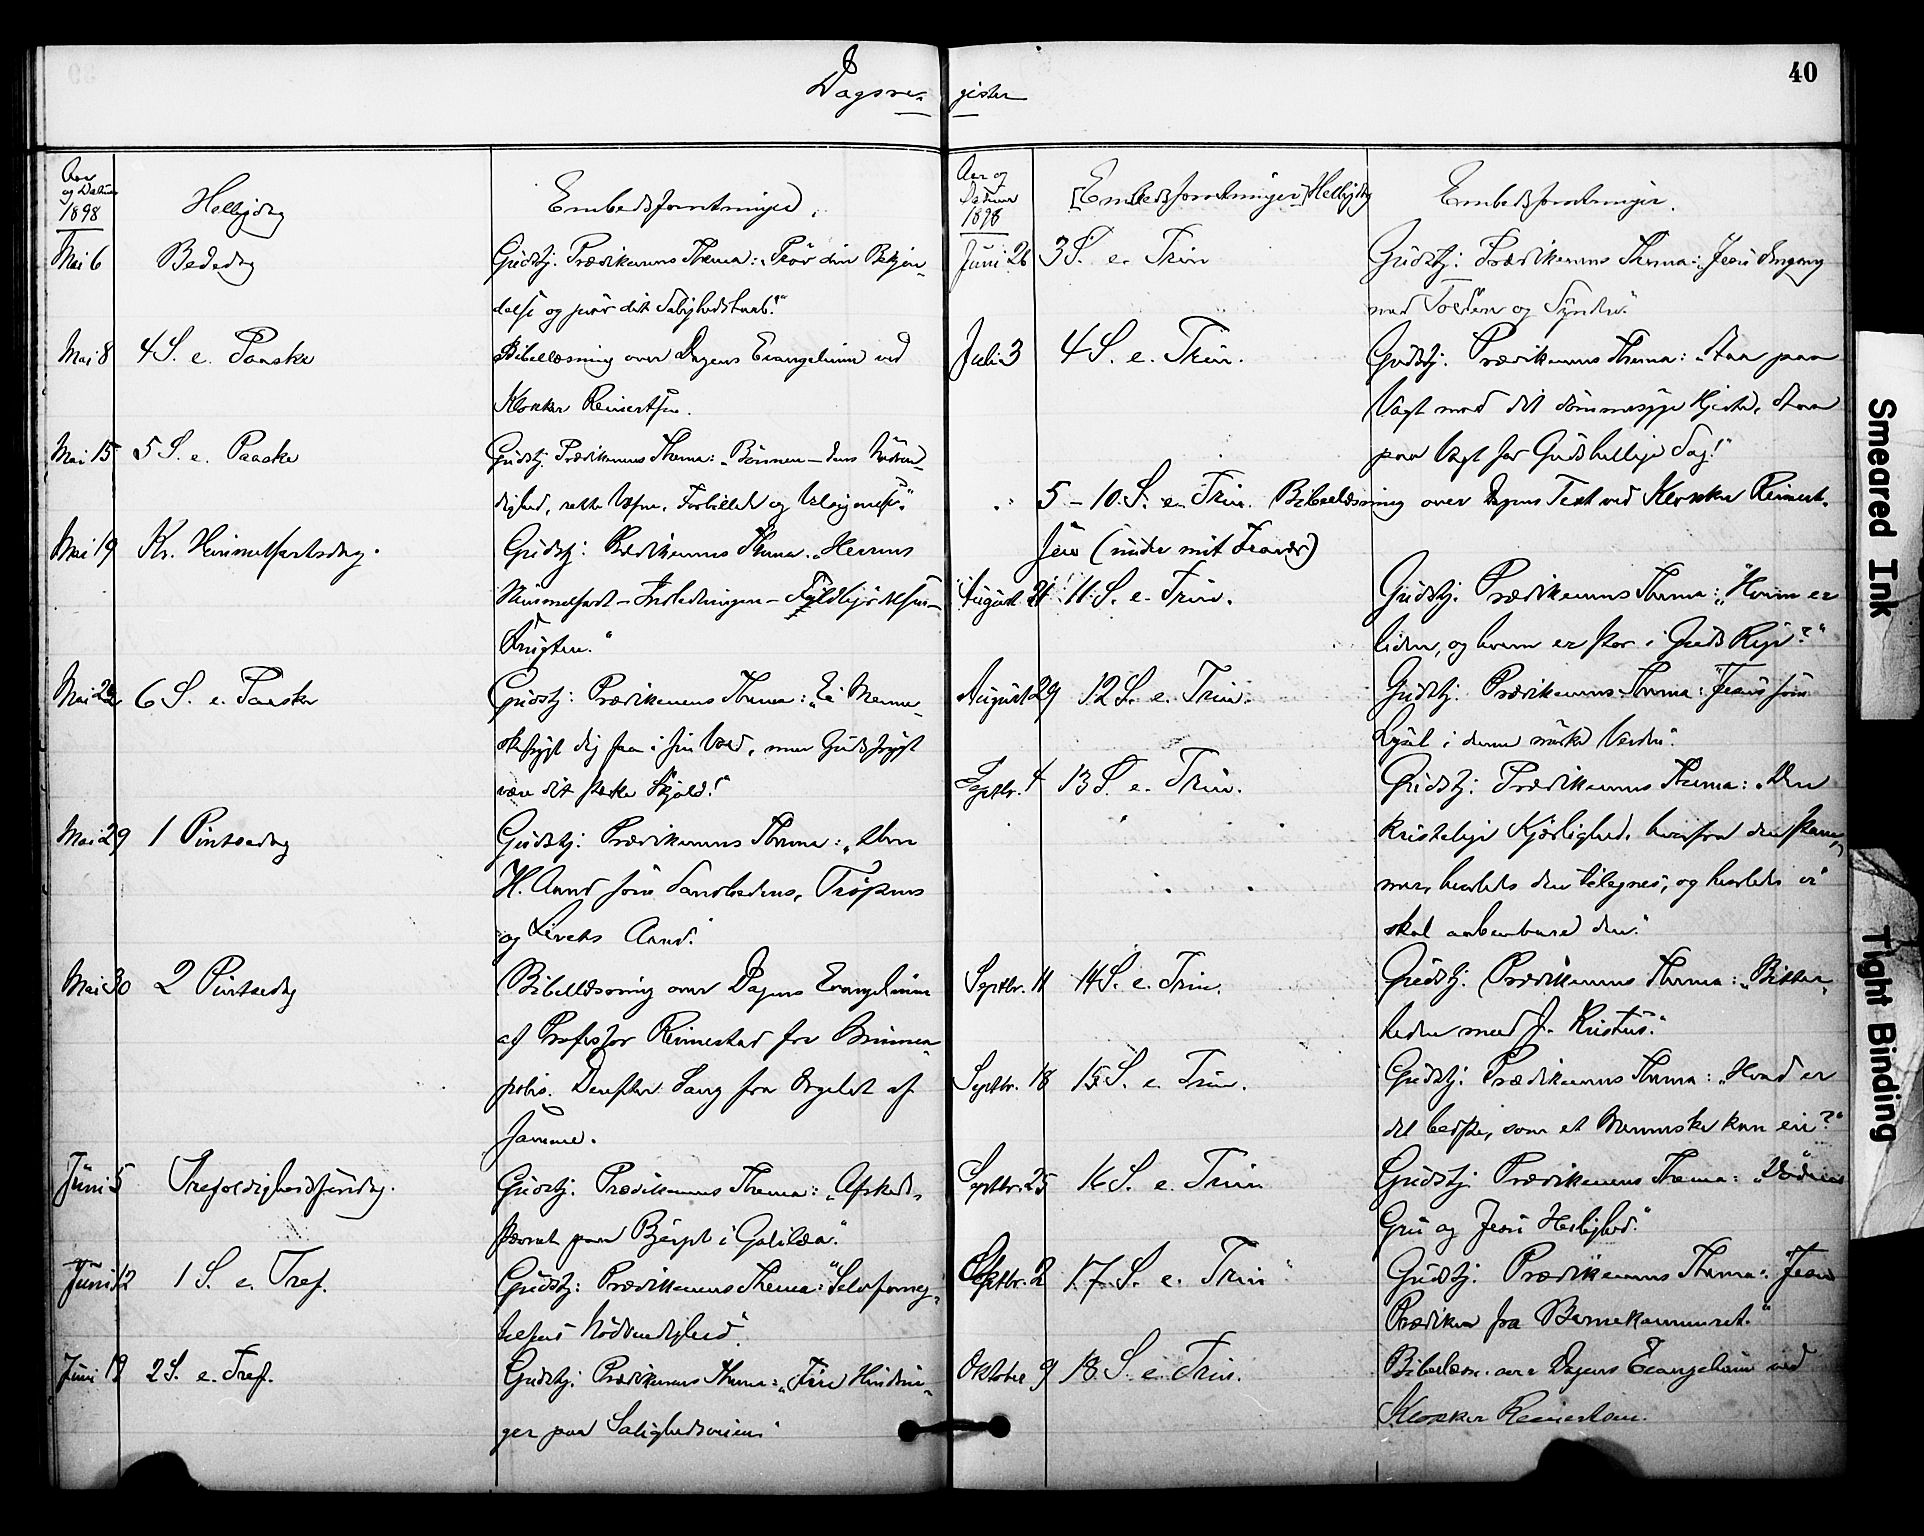 Dagsre- gister
40
Aar og Datum 1898
Helligdag
Embedsforretninger.
Mai 6 Bededag Gudstj. Prædikenens Thema: „Prøv din Bekjen-
delse og prøv dit Salighedshaab!"
Mai 8 4 S. e. Paaske Bibellæsning over Dagens Evangelium ved
Klokker Reinertsen.
Mai 15 5 S. e. Paaske Gudstj. Prædikenens Thema: „Bønnen – dens Nødven-
dighed, rette Væsen, Forbillede og Velsignelse."
Mai 19 Kr. Himmelfartsdag. Gudstj: Prædikenens Thema. „Herrens
Himmelfart – Indledningen – Fuldbyrdelsen –
Frugten."
Mai 22 6 S. e. Paaske Gudstj: Prædikenens Thema: „Ei Menne-
skefrygt dig faa i sin Vold, men Gudsfrygt
være dit stærke Skjold!"
Mai 29 1 Pintsedag Gudstj: Prædikenens Thema: „Den
H. Aand som Sandhedens, Trøstens
og Livets Aand."
Mai 30 2 Pintsedag Bibellæsning over Dagens Evangelium
af Professor Reimestad fra Minnea-
polis. Derefter Sang fra Orgelet af
samme.
Juni 5 Trefoldighedssøndag. Gudstj. Prædikenens Thema: „Afskeds-
stævnet paa Bjerget i Galilæa."
Juni 12 1 S. e. Tref. Gudstj: Prædikenens Thema: "Selvforneg-
telsens Nødvendighed".
Juni 19 2 S. e. Tref. Gudstj: Prædikenens Thema: „Fire Hindrin-
ger paa Salighedsveien"
Aar og Datum 1898
[Embedsforretninger] Helligdag
Embedsforretninger.
Juni 26 3 S. e. Trin Gudstj: Prædikenens Thema: „Jesu Omgang
med Toldere og Syndere."
Juli 3 4 S. e. Trin. Gudstj. Prædikenens Thema: „Staa paa
Vagt mod det dømmesyge Hjerte, staa
paa Vagt for Guds hellige Sag!"
" 5 – 10. S. e. Trin. Bibellæsning over Dagens Text ved Klokker Reinert-
sen (under mit Fravær)
August 21 11 S. e. Trin. Gudstj. Prædikenens Thema: „Hvem er
liden, og hvem er stor i Guds Rige?"
August 29 12 S. e. Trin. Gudstj. Prædikenens Thema: „Jesus som
Lyset i denne mørke Verden".
Septbr. 4 13 S. e. Trin. Gudstj: Prædikenens Thema: „Den
kristelige Kjærlighed, hvorfra den stam-
mer, hvorledes den tilegnes, og hvorledes vi
skal aabenbare den."
Septbr. 11 14 S. e. Trin. Gudstj. Prædikenens Thema:
med J. Kristus."
Septbr. 18 15 S. e. Trin. Gudstj: Prædikenens Thema: „Hvad er
det bedste, som et Menneske kan eie?"
Septbr. 25 16 S. e. Trin Gudstj. Prædikenens Thema: „Dødens
Gru og Jesu Herlighed."
2 17. S. e. Trin Gudstj. Prædikenens Thema: „Jesu
Prædiken fra Barnekammeret."
Oktober 9 18. S. e. Trin. Bibellæsn. over Dagens Evangelium ved
Klokker Reinertsen.
Smeared Ink
Tight Binding